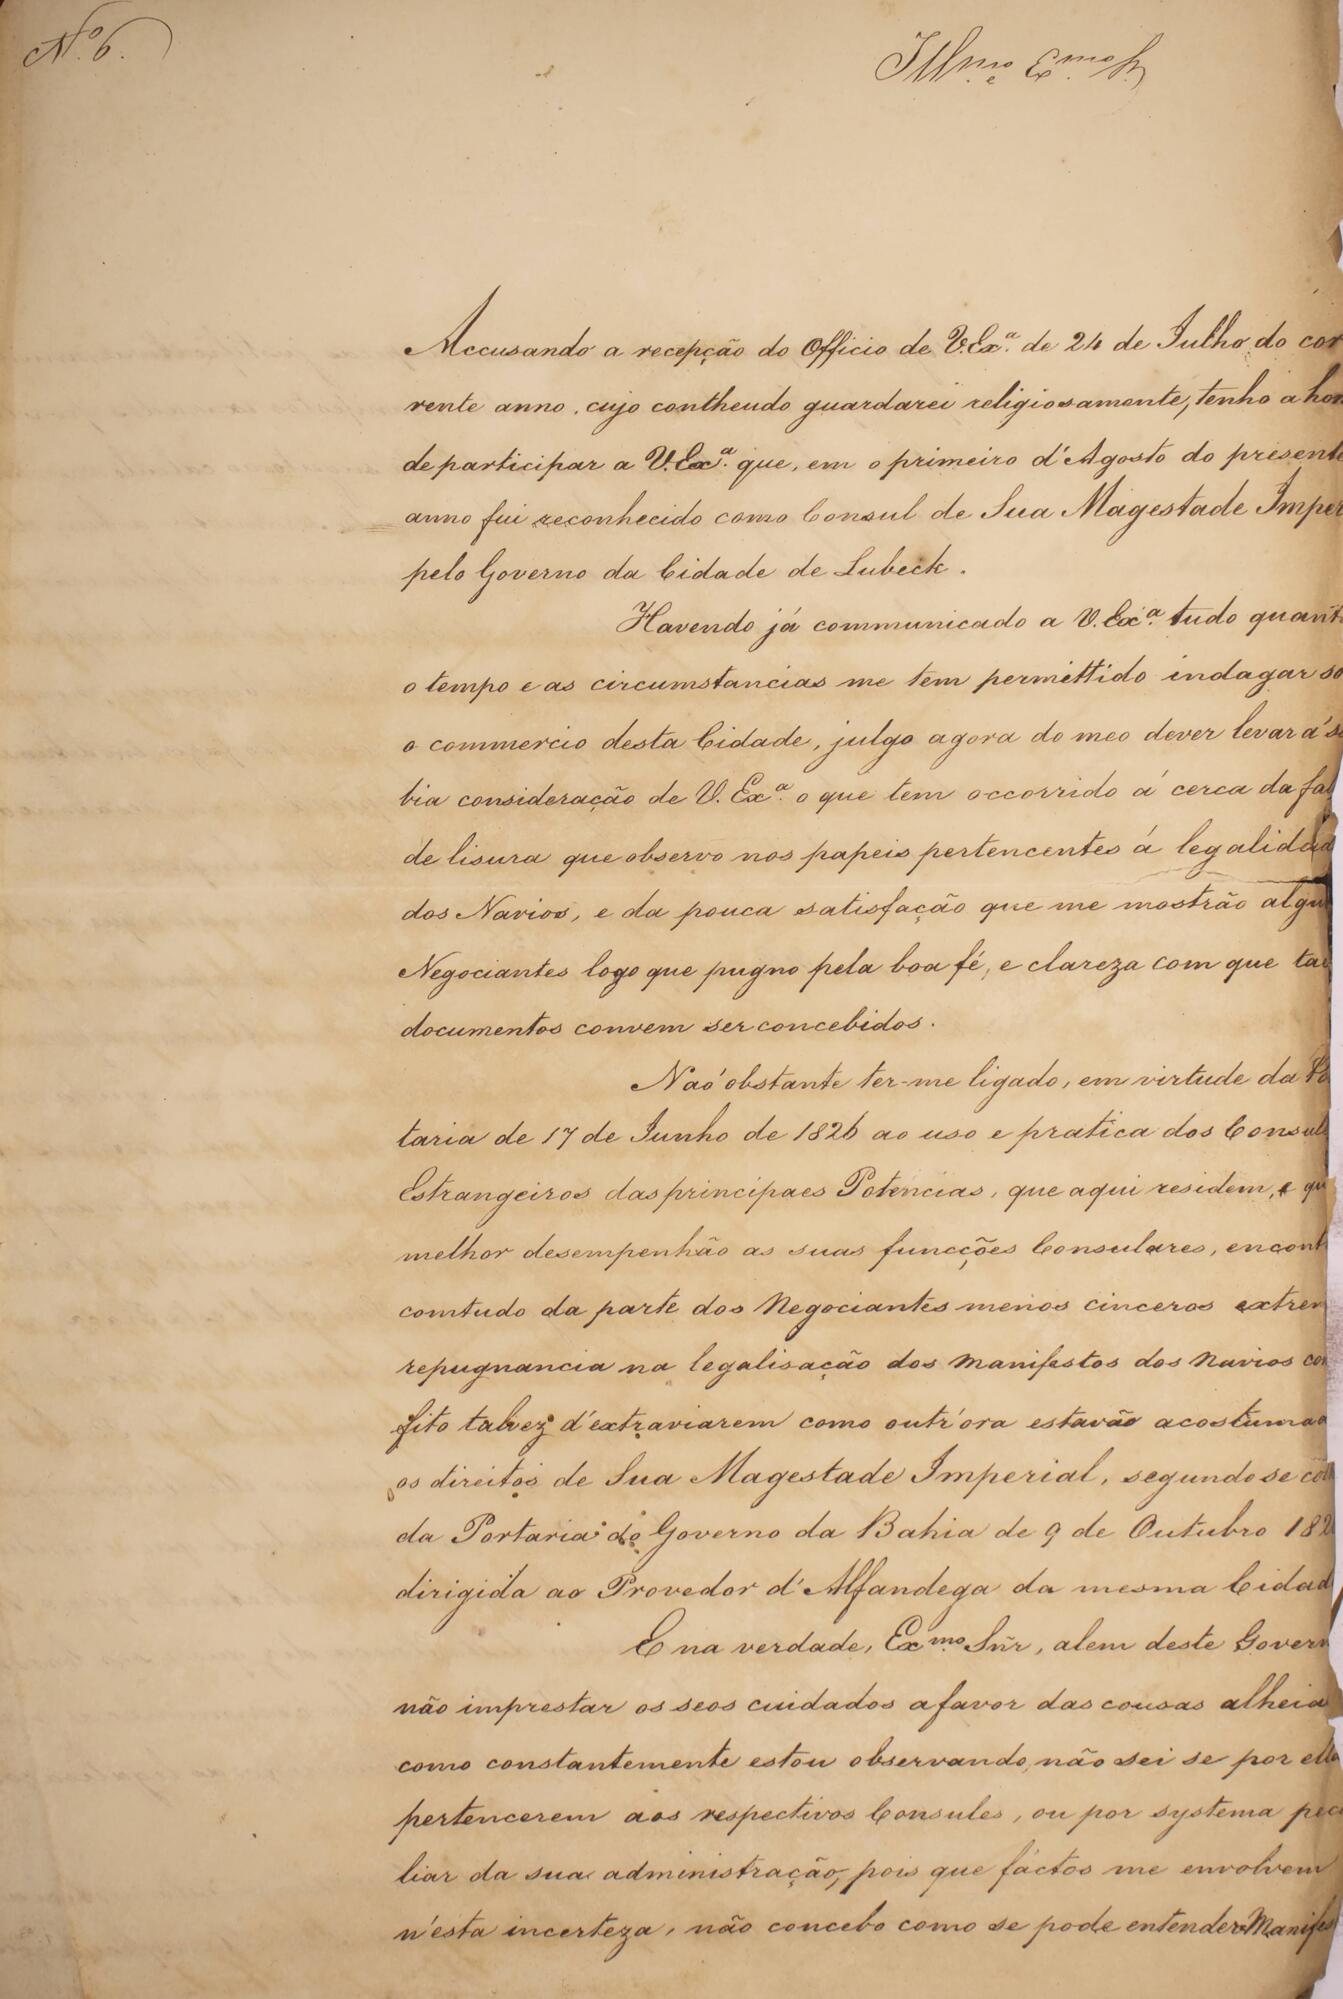 Nº 6.
Illmo e Exmo Sr.
Accusando a recepção do Officio de V.Exª. de 24 de Julho do cor
rente anno, cujo contheudo guardarei religiosamente, tenho a hon
de participar a V.Exª. que, em o primeiro d'Agosto do presente
anno fui reconhecido como Consul de Sua Magestade Imper
pelo Governo da Cidade de Lubeck.
Havendo já communicado a V.Exª. tudo quanto
o tempo e as circumstancias me tem permittido indagar so
o commercio desta Cidade, julgo agora do meo dever levar á sa
bia consideração de V. Exª. o que tem occorrido á cerca da fal
de lisura que observo nos papeis pertencentes á legalidad
dos Navios, e da pouca satisfação que me mostrão algu
Negociantes logo que pugno pela boa fé, e clareza com que tae
documentos convem ser concebidos.
Naõ obstante ter-me ligado, em virtude da Po
taria de 17 de Junho de 1826 ao uso e pratica dos Consul
Estrangeiros das principaes Potencias, que aqui residem, e qu
melhor desempenhão as suas funcções Consulares, encont
comtudo da parte dos Negociantes menos cinceros extrem
repugnancia na legalisação dos Manifestos dos Navios con
fito talvez d'extraviarem como outr'ora estavão acostumad
os direitos de Sua Magestade Imperial, segundo se co
da Portaria do Governo da Bahia de 9 de Outubro 182
dirigida ao Provedor d'Alfandega da mesma Cidad
E na verdade, Exmo Sñr, alem deste Govern
não imprestar os seos cuidados a favor das cousas alheia
como constantemente estou observando, não sei se por ella
pertencerem aos respectivos Consules, ou por systema pecu
liar da sua administração, pois que fáctos me envolvem
n'esta incerteza, não concebo como se pode entender Manifes